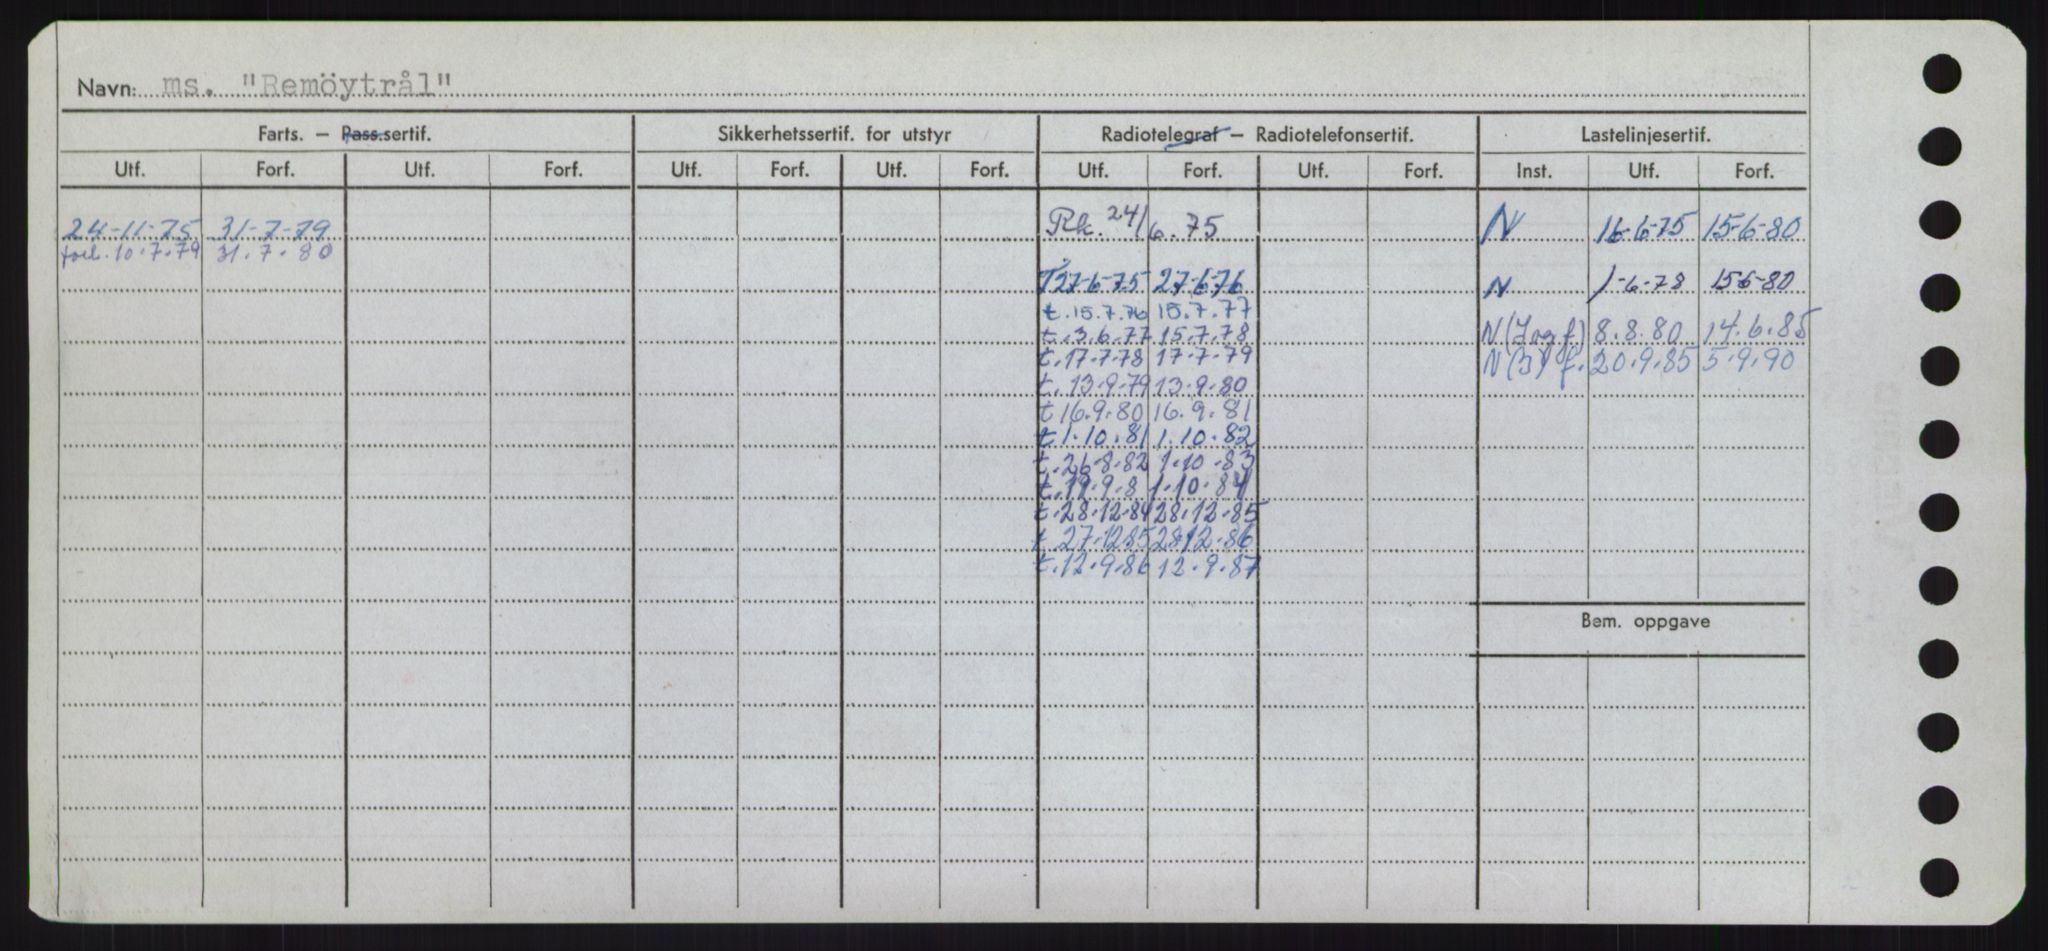 Navn: ms. "Remöytrål"
Farts. — Pass.sertif. Sikkerhetssertif. for utstyr Radiotelegraf — Radiotelefonsertif. Lastelinjesertif.
Utf. Forf. Utf. Forf. Utf. Forf. Utf. Forf. Utf. Forf. Utf. Forf. Inst. Utf. Forf.
24-11-75 31-7-79 Rk. 24/6.75 N 16-6-75 15-6-80
forl. 10.7.79 31.7.80
T 27-6-75 27-6-76 N 1-6-78 15-6-80
t. 15.7.76 15.7.77
t. 3.6.77 15.7.78 8.8.80 14.6.85
t. 17.7.78 17.7.79 N(3) f. 20.9.85 5.9.90
t. 13.9.79 13.9.80
t 16.9.80 16.9.81
t 1.10.81 1.10.82
t. 26.8.82 1.10.83
t. 19.9.8 1.10.84
t. 28.12.84 28.12.85
t. 27.12.85 28.12.86
t. 12.9.86 12.9.87
Bem. oppgave